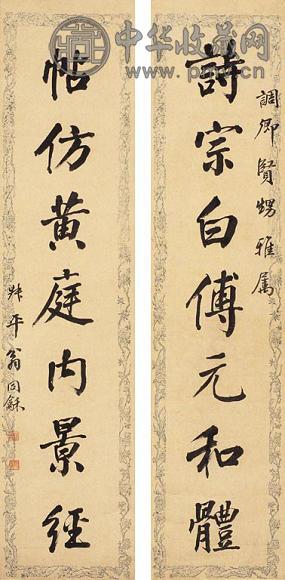 中华收藏网
www.pmcv.cn
調卿賢甥雅属
詩宗白傅元和體
帖仿黄庭内景經
叔平翁同龢